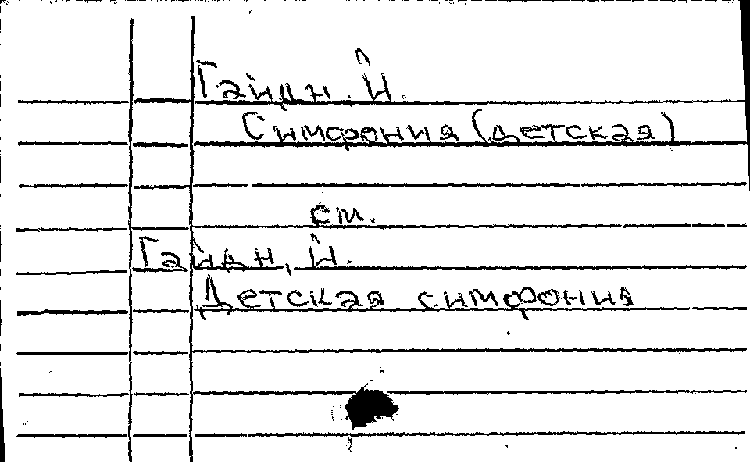 Гайдн. Й.
Симфония (детская)
см.
Гайдн, Й.
Детская симфония